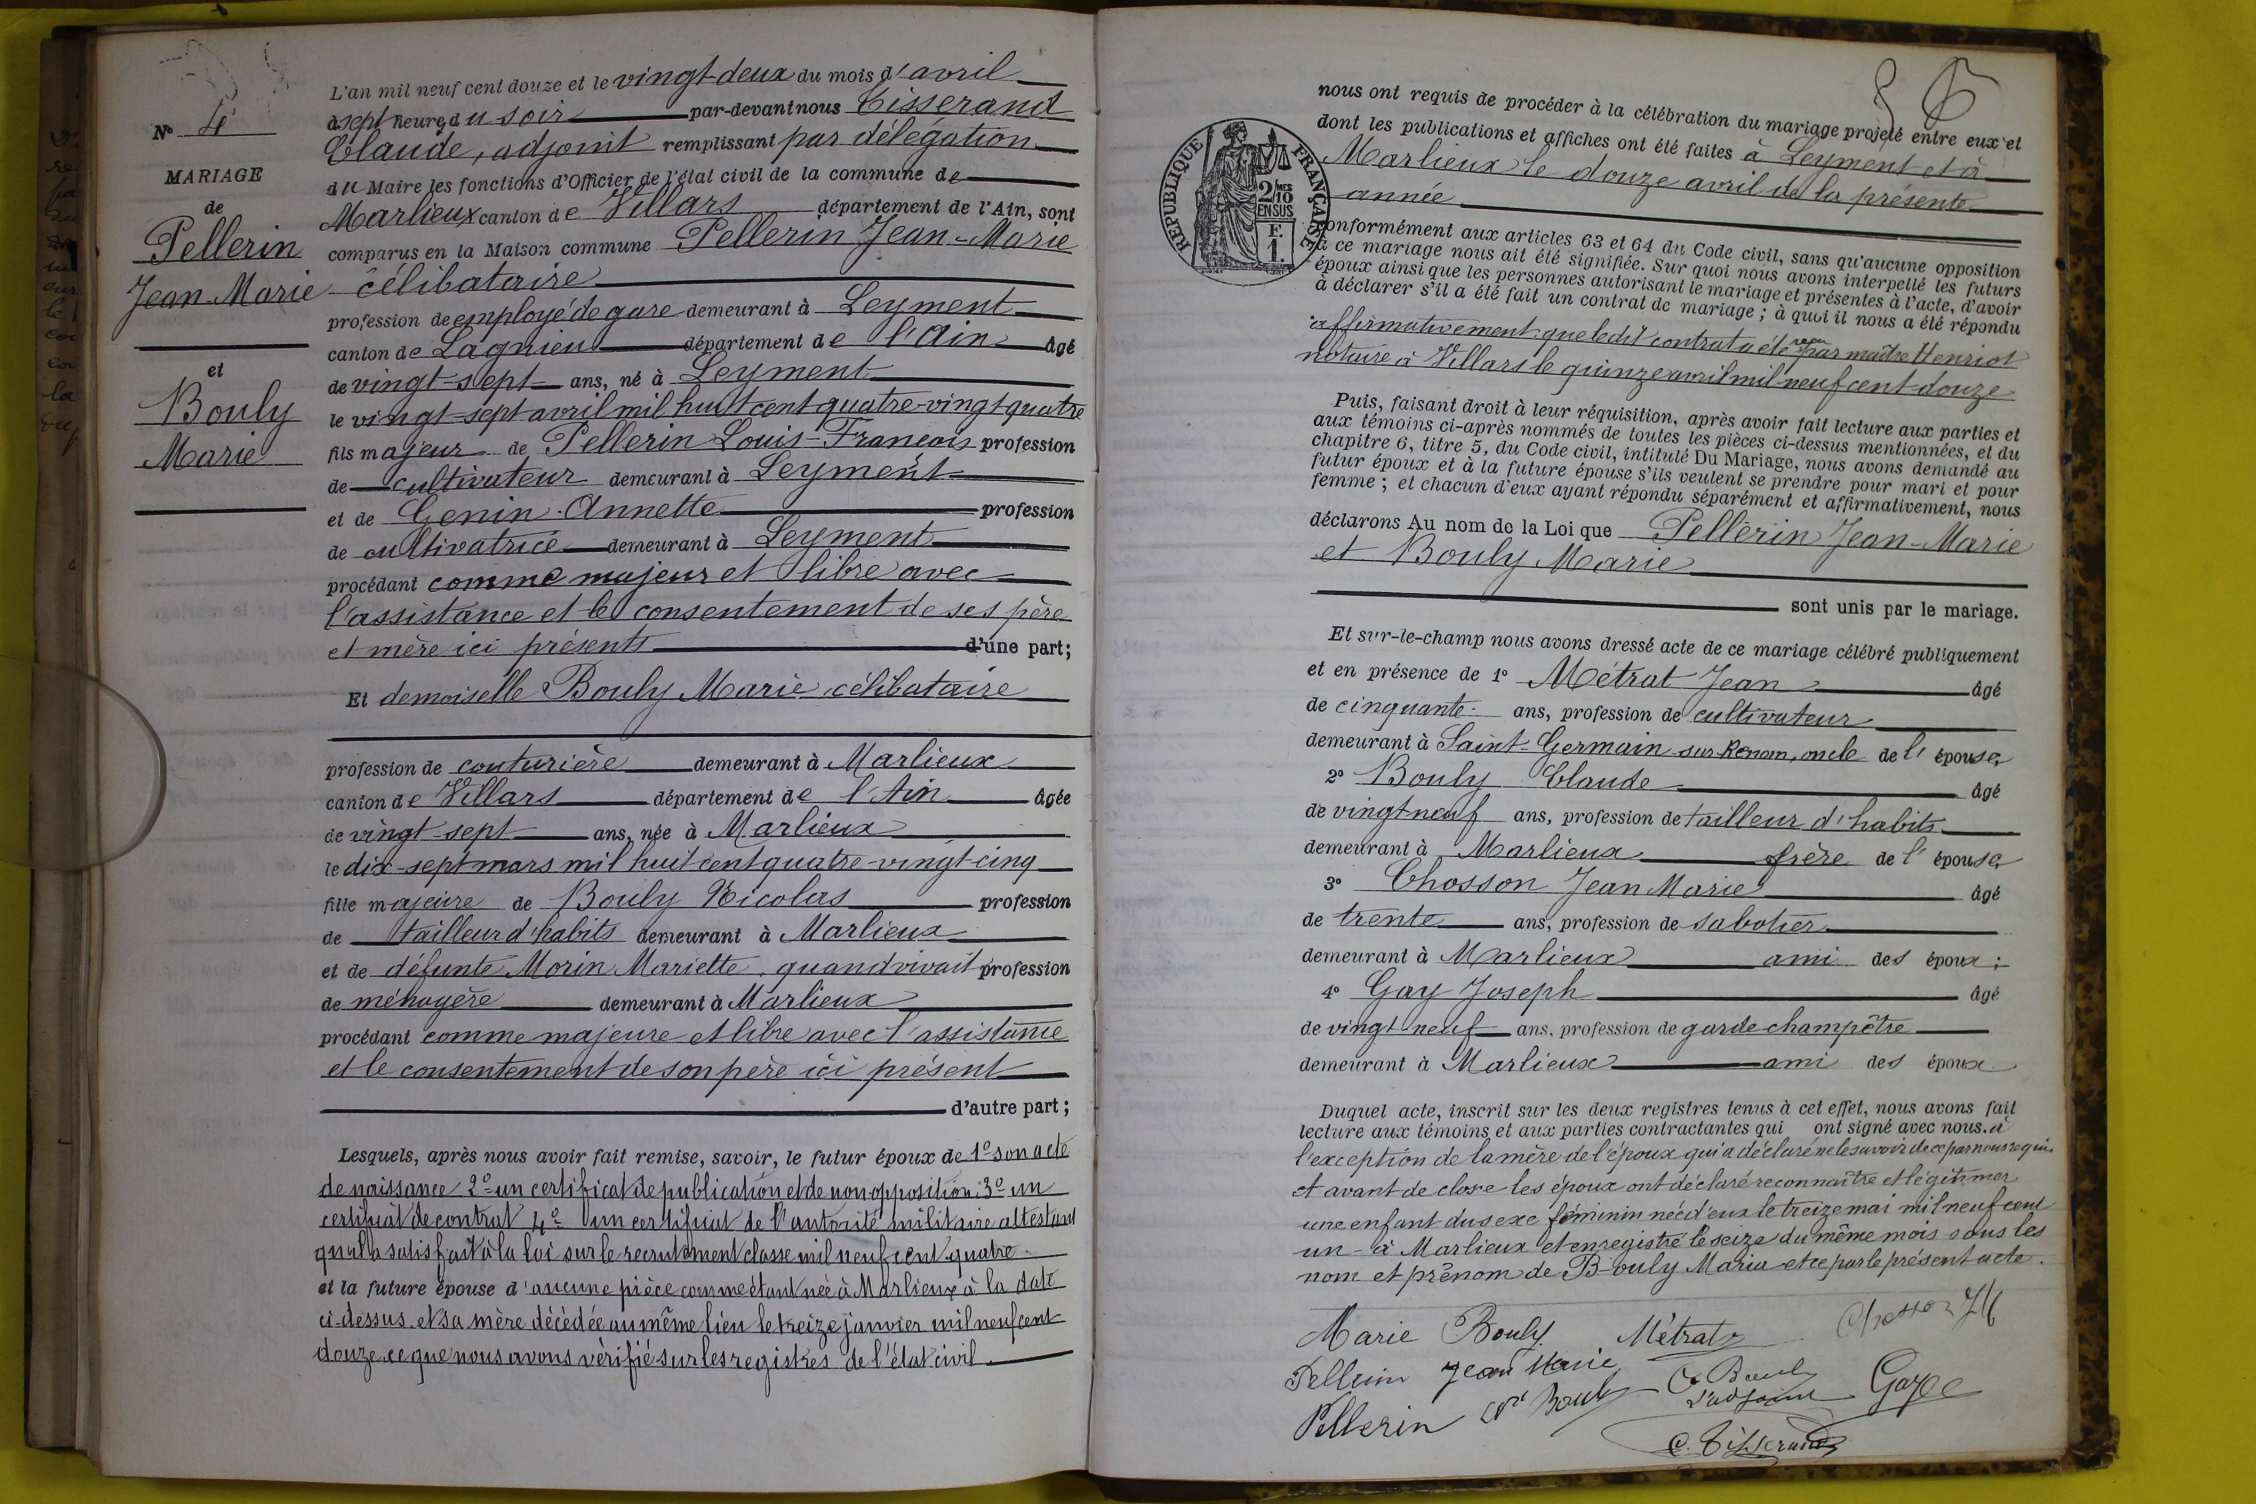 N° 4
MARIAGE
de
Pellerin
Jean-Marie
et
Bouly
Marie
L'an mil neuf cent douze et le vingt-deux du mois d'avril
à sept heures du soir par-devant nous Tisserand
Claude, adjoint remplissant par délégation
du Maire les fonctions d'Officier de l'état civil de la commune de
Marlieux canton de Villars département de l'Ain, sont
comparus en la Maison commune Pellerin Jean-Marie
célibataire
profession de employé de gare demeurant à Leyment
canton de Lagnieu département de l'Ain âgé
de vingt-sept ans, né à Leyment
le vingt-sept avril mil huit cent quatre-vingt quatre
fils majeur de Pellerin Louis-François profession
de cultivateur demeurant à Leyment
et de Genin Annette profession
de cultivatrice demeurant à Leyment
procédant comme majeur et libre avec
l'assistance et le consentement de ses père
et mère ici présents d'une part;
Et demoiselle Bouly Marie célibataire
profession de couturière demeurant à Marlieux
canton de Villars département de l'Ain âgée
de vingt-sept ans, née à Marlieux
le dix-sept mars mil huit cent quatre-vingt-cinq
fille majeure de Bouly Nicolas profession
de tailleur d'habits demeurant à Marlieux
et de défunte Morin Mariette quand vivait profession
de ménagère demeurant à Marlieux
procédant comme majeure et libre avec l'assistance
et le consentement de son père ici présent
d'autre part;
Lesquels, après nous avoir fait remise, savoir, le futur époux de 1° son acte
de naissance 2° un certificat de publication et de non-opposition 3° un
certificat de contrat 4° un certificat de l'autorité militaire attestant
qu'il a satisfait à la loi sur le recrutement classe mil neuf cent quatre
et la future épouse d'aucune pièce comme étant née à Marlieux à la date
ci-dessus et sa mère décédée au même lieu le treize janvier mil neuf cent
douze ce que nous avons vérifié sur les registres de l'état civil.
nous ont requis de procéder à la célébration du mariage projeté entre eux et
dont les publications et affiches ont été faites à Leyment et à
Marlieux le douze avril de la présente
année
RÉPUBLIQUE FRANÇAISE
2/10 MES
EN SUS
F.
1.
conformément aux articles 63 et 64 du Code civil, sans qu'aucune opposition
à ce mariage nous ait été signifiée. Sur quoi nous avons interpellé les futurs
époux ainsi que les personnes autorisant le mariage et présentes à l'acte, d'avoir
à déclarer s'il a été fait un contrat de mariage; à quoi il nous a été répondu
affirmativement que ledit contrat a été reçu par maître Henriot
notaire à Villars le quinze avril mil neuf cent douze
Puis, faisant droit à leur réquisition, après avoir fait lecture aux parties et
aux témoins ci-après nommés de toutes les pièces ci-dessus mentionnées, et du
chapitre 6, titre 5, du Code civil, intitulé Du Mariage, nous avons demandé au
futur époux et à la future épouse s'ils veulent se prendre pour mari et pour
femme; et chacun d'eux ayant répondu séparément et affirmativement, nous
déclarons Au nom de la Loi que Pellerin Jean-Marie
et Bouly Marie
sont unis par le mariage.
Et sur-le-champ nous avons dressé acte de ce mariage célébré publiquement
et en présence de 1° Métrat Jean âgé
de cinquante ans, profession de cultivateur
demeurant à Saint-Germain sur Renom, oncle de l'épouse,
2° Bouly Claude âgé
de vingt neuf ans, profession de tailleur d'habits
demeurant à Marlieux frère de l'épouse,
3° Chosson Jean Marie âgé
de trente ans, profession de sabotier
demeurant à Marlieux ami des époux;
4° Gay Joseph âgé
de vingt neuf ans, profession de garde-champêtre
demeurant à Marlieux ami des époux.
Duquel acte, inscrit sur les deux registres tenus à cet effet, nous avons fait
lecture aux témoins et aux parties contractantes qui ont signé avec nous. à
l'exception de la mère de l'époux qui a déclaré ne le savoir de ce par nous requis
et avant de clore les époux ont déclaré reconnaître et légitimer
une enfant du sexe féminin née d'eux le treize mai mil neuf cent
un à Marlieux et enregistré le seize du même mois sous les
nom et prénom de Bouly Maria et ce par le présent acte.
Marie Bouly Métrat Chosson JM
Pellerin Jean Marie C. Bouly
l'adjoint Gay
Pellerin Bouly
C. Tisserand